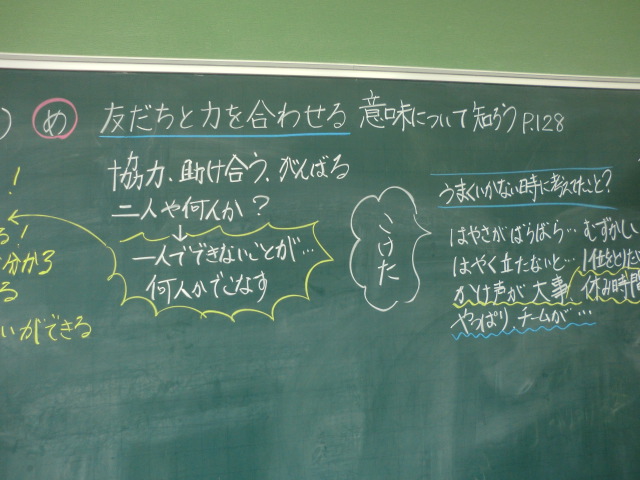 め 友だちと力を合わせる 意味について知ろう P.128
協力、助け合う、がんばる
二人や何人か?
↓
一人でできないことが…
何人かでこなす
こけた
うまくいかない時に考えてたこと?
はやさがばらばら… むずかしい
はやく立たないと…
かけ声が大事 休み時間
やっぱりチームが…
!
る!
分かる
る
いができる